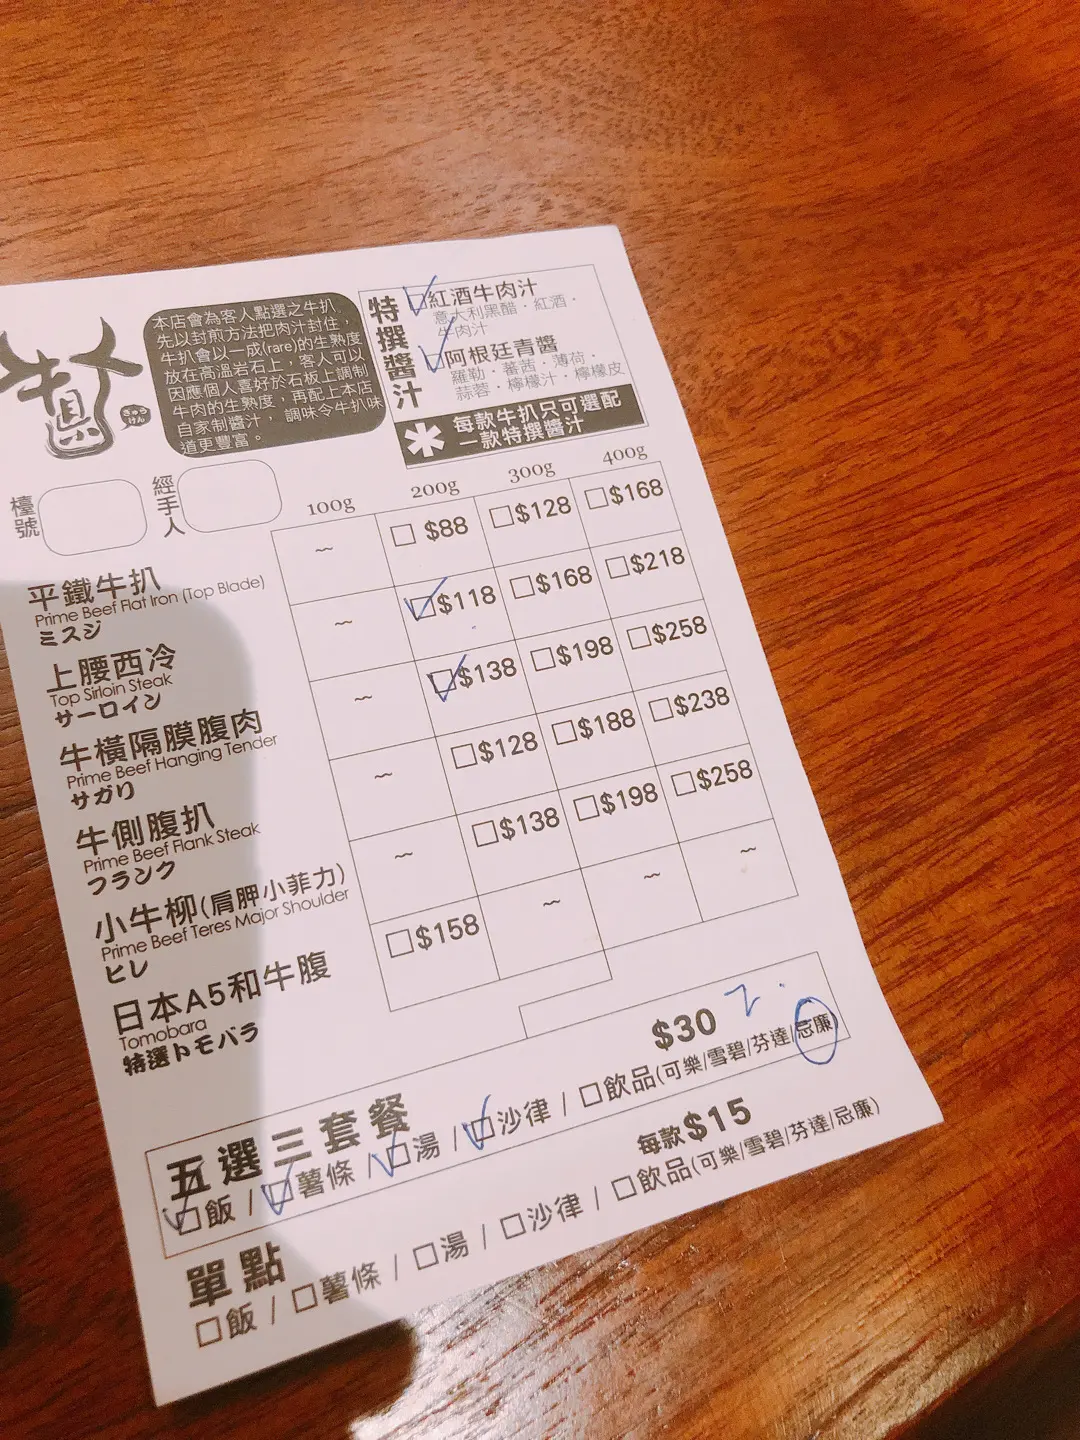 牛真人
ぎゅう
けん
本店會為客人點選之牛扒
先以封煎方法把肉汁封住，
牛扒會以一成(rare)的生熟度
放在高溫岩石上，客人可以
因應個人喜好於石板上調制
牛肉的生熟度，再配上本店
自家制醬汁， 調味令牛扒味
道更豐富。
特撰醬汁
□紅酒牛肉汁
意大利黑醋．紅酒．
牛肉汁
□阿根廷青醬
羅勒．蕃茜．薄荷．
蒜蓉．檸檬汁．檸檬皮
* 每款牛扒只可選配
一款特撰醬汁
檯號
經手人
100g 200g 300g 400g
平鐵牛扒 ~ □ $88 □$128 □$168
Prime Beef Flat Iron (Top Blade)
ミスジ
上腰西冷 ~ □$118 □$168 □$218
Top Sirloin Steak
サーロイン
牛橫隔膜腹肉 ~ □$138 □$198 □$258
Prime Beef Hanging Tender
サガり
牛側腹扒 ~ □$128 □$188 □$238
Prime Beef Flank Steak
フランク
小牛柳(肩胛小菲力) ~ □$138 □$198 □$258
Prime Beef Teres Major Shoulder
ヒレ
日本A5和牛腹 □$158 ~ ~ ~
Tomobara
特選トモバラ
五選三套餐 $30 2.
□飯 / □薯條 / □湯 / □沙律 / □飲品(可樂/雪碧/芬達/忌廉)
單點 每款$15
□飯 / □薯條 / □湯 / □沙律 / □飲品(可樂/雪碧/芬達/忌廉)